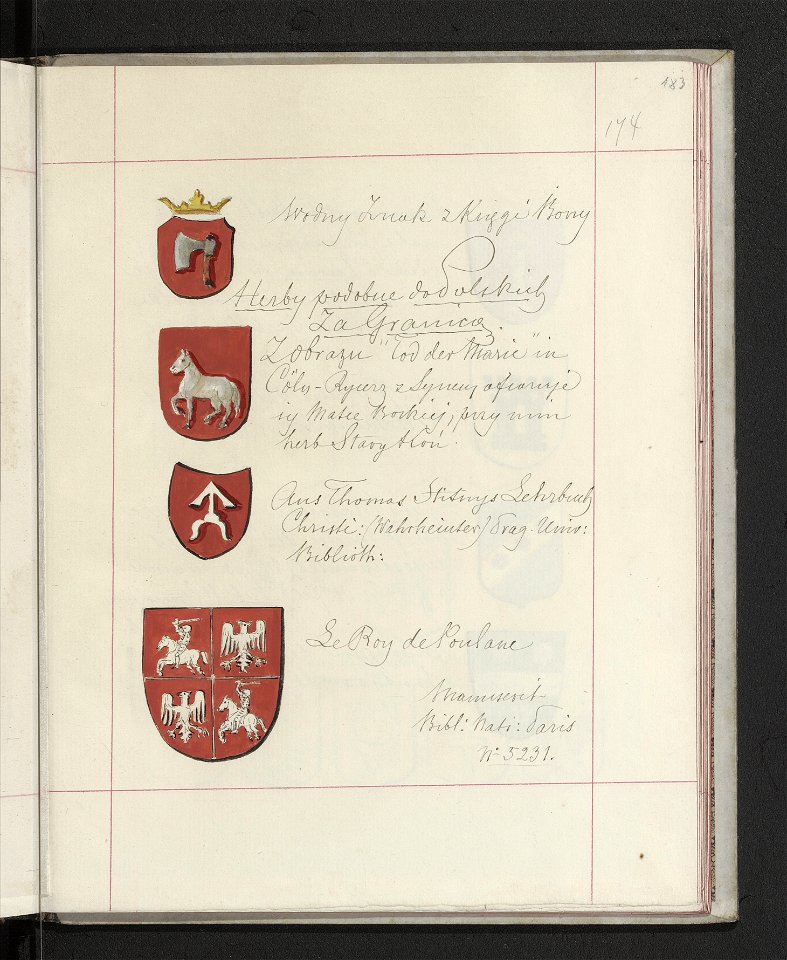 183
174
Wodny Znak z Księgi Bony
Herby podobne do Polskich
Za Granicą.
Z obrazu "Tod der Marie" in
Cöln - Rycerz z Synem ofiaruje
Matce Boskiej, przy nim
herb Stary Koń.
Aus Thomas Stitnys Lehrbuch
Christi: Prag. Univ:
Biblioth:
Le Roy de Poulane
Manuscrit
Bibl: Nati: Paris
No 5231.